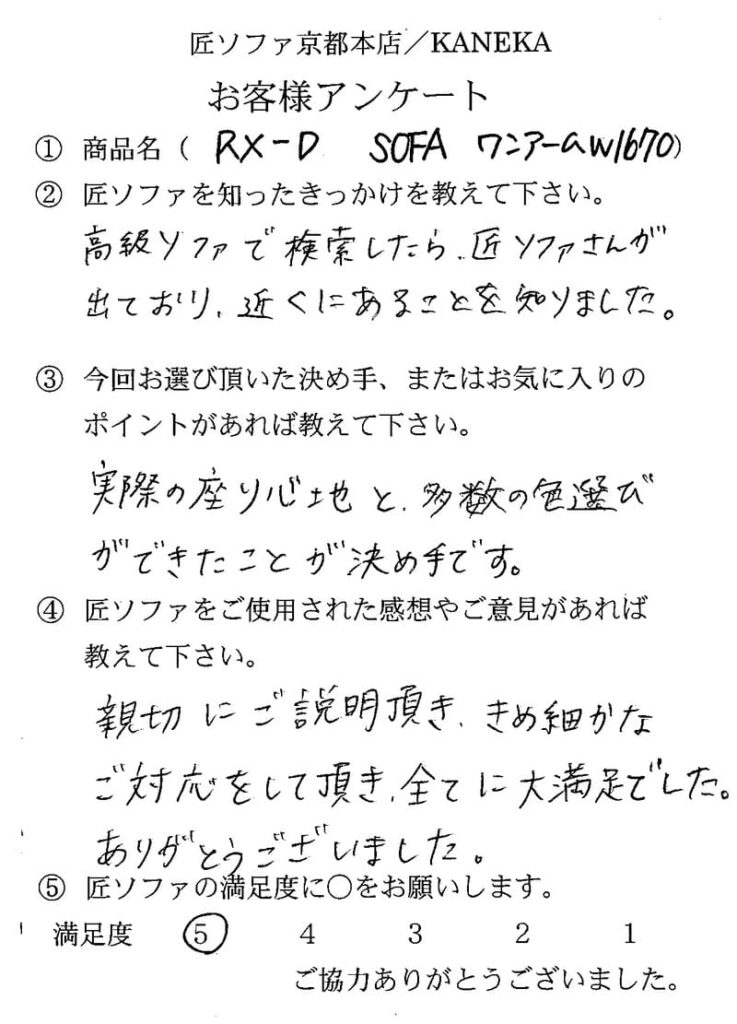 匠ソファ京都本店／KANEKA
お客様アンケート
① 商品名（ RX-D SOFA ワンアームW1670）
② 匠ソファを知ったきっかけを教えて下さい。
高級ソファで検索したら、匠ソファさんが
出ており、近くにあることを知りました。
③ 今回お選び頂いた決め手、またはお気に入りの
ポイントがあれば教えて下さい。
実際の座り心地と、多数の色選び
ができたことが決め手です。
④ 匠ソファをご使用された感想やご意見があれば
教えて下さい。
親切にご説明頂き、きめ細かな
ご対応をして頂き、全てに大満足でした。
ありがとうございました。
⑤ 匠ソファの満足度に○をお願いします。
満足度 5 4 3 2 1
ご協力ありがとうございました。